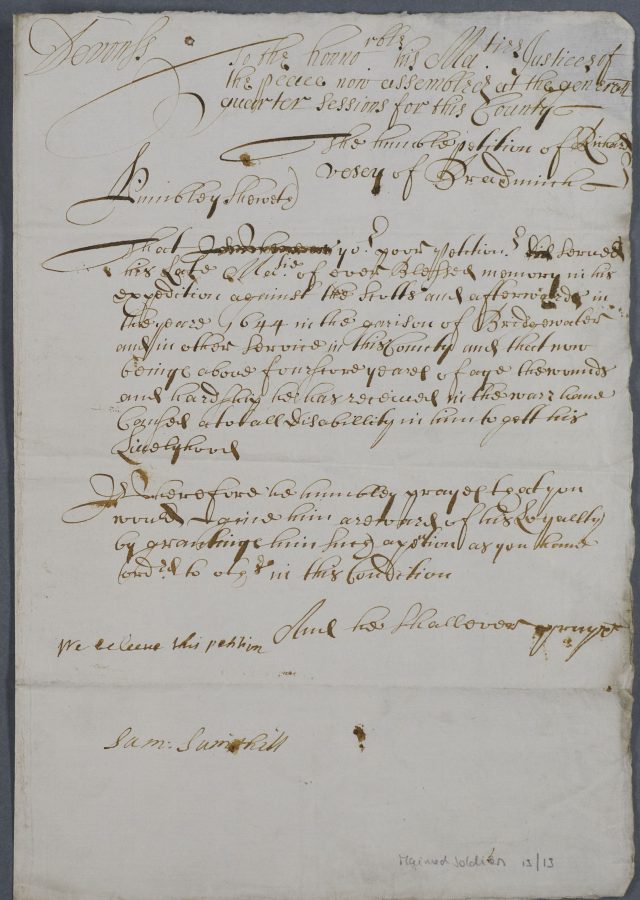 Devonss
To the hono:rble his Ma:ties Justices of
the peace now assembled at the generall
quarter sessions for this County
The humble petition of Richard
vesey of Bradninch
Humbley Sheweth
That yor: poor Petitionr: served
his Late Ma:tie of ever Blessed memory in his
expedition against the Scotts and afterwards in
the yeare 1644 in the garison of Bridgewater
and in other service in this County and that now
beinge above fourscore yeares of age the wounds
and hardship he has received in the warr have
Caused a totall disability in him to gett his
Livelyhood
Wherefore he humbley prayes that you
would give him a reward of his Loyallty
by grantinge him such a pention as you have
ordrd to othrs in this Condition
And he shall ever praye
We beleeve this petition
Sam: Sainthill
Maimed soldiers 13/13